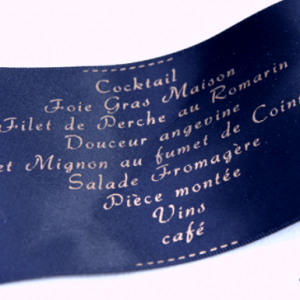 Cocktail
Foie Gras Maison
Filet de Perche au Romarin
Douceur angevine
et Mignon au fumet de Coint
Salade Fromagère
Pièce montée
Vins
café